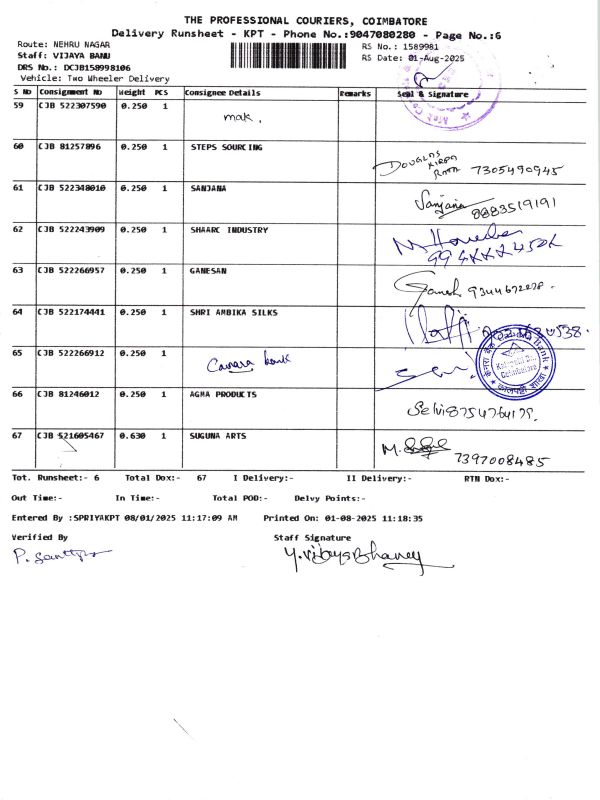 THE PROFESSIONAL COURIERS, COIMBATORE
Delivery Runsheet - KPT - Phone No.:9047080280 - Page No.:6
Route: NEHRU NAGAR
Staff: VIJAYA BANU
DRS No.: DCJB158998106
Vehicle: Two Wheeler Delivery
RS No.: 1589981
RS Date: 01-Aug-2025
S No Consignment No Weight PCS Consignee Details Remarks Seal & Signature
59 CJB 522307590 0.250 1 mak.
60 CJB 81257896 0.250 1 STEPS SOURCING DOUGLAS 7305490945
61 CJB 522348010 0.250 1 SANJANA Sanjana 8883519191
62 CJB 522243909 0.250 1 SHAARC INDUSTRY
63 CJB 522266957 0.250 1 GANESAN Ganesh
64 CJB 522174441 0.250 1 SHRI AMBIKA SILKS
65 CJB 522266912 0.250 1 Canara bank
66 CJB 81246012 0.250 1 AGMA PRODUCTS Selvi
67 CJB 521605467 0.630 1 SUGUNA ARTS M. 7397008485
Tot. Runsheet:- 6 Total Dox:- 67 I Delivery:- II Delivery:- RTN Dox:-
Out Time:- In Time:- Total POD:- Delvy Points:-
Entered By :SPRIYAKPT 08/01/2025 11:17:09 AM Printed On: 01-08-2025 11:18:35
Verified By Staff Signature